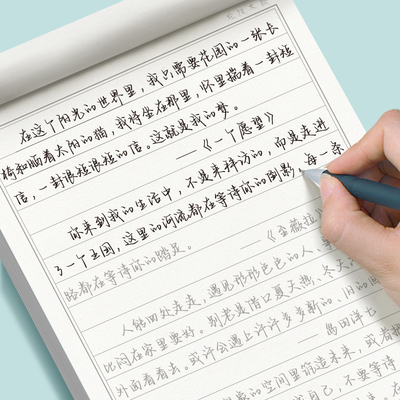 在这个阳光的世界里，我只需要花园的一张长
椅和晒着太阳的猫，我将坐在那里，怀里揣着一封短
信，一封很短很短的信。这就是我的梦。
——《一个愿望》
你来到我的生活中，不是来拜访的，而是走进
了一个王国，这里的河流都在等待你的倒影，每一条
路都在等待你的踏足。——《金蔷薇
人能四处走走，遇见形形色色的人、
比闷在家里要好。别老是借口夏天热、冬天
外面看看去。或许会遇上许许多多新的、旧的
——岛田洋七
的空间里筑造未来，或者
自己，不要等待